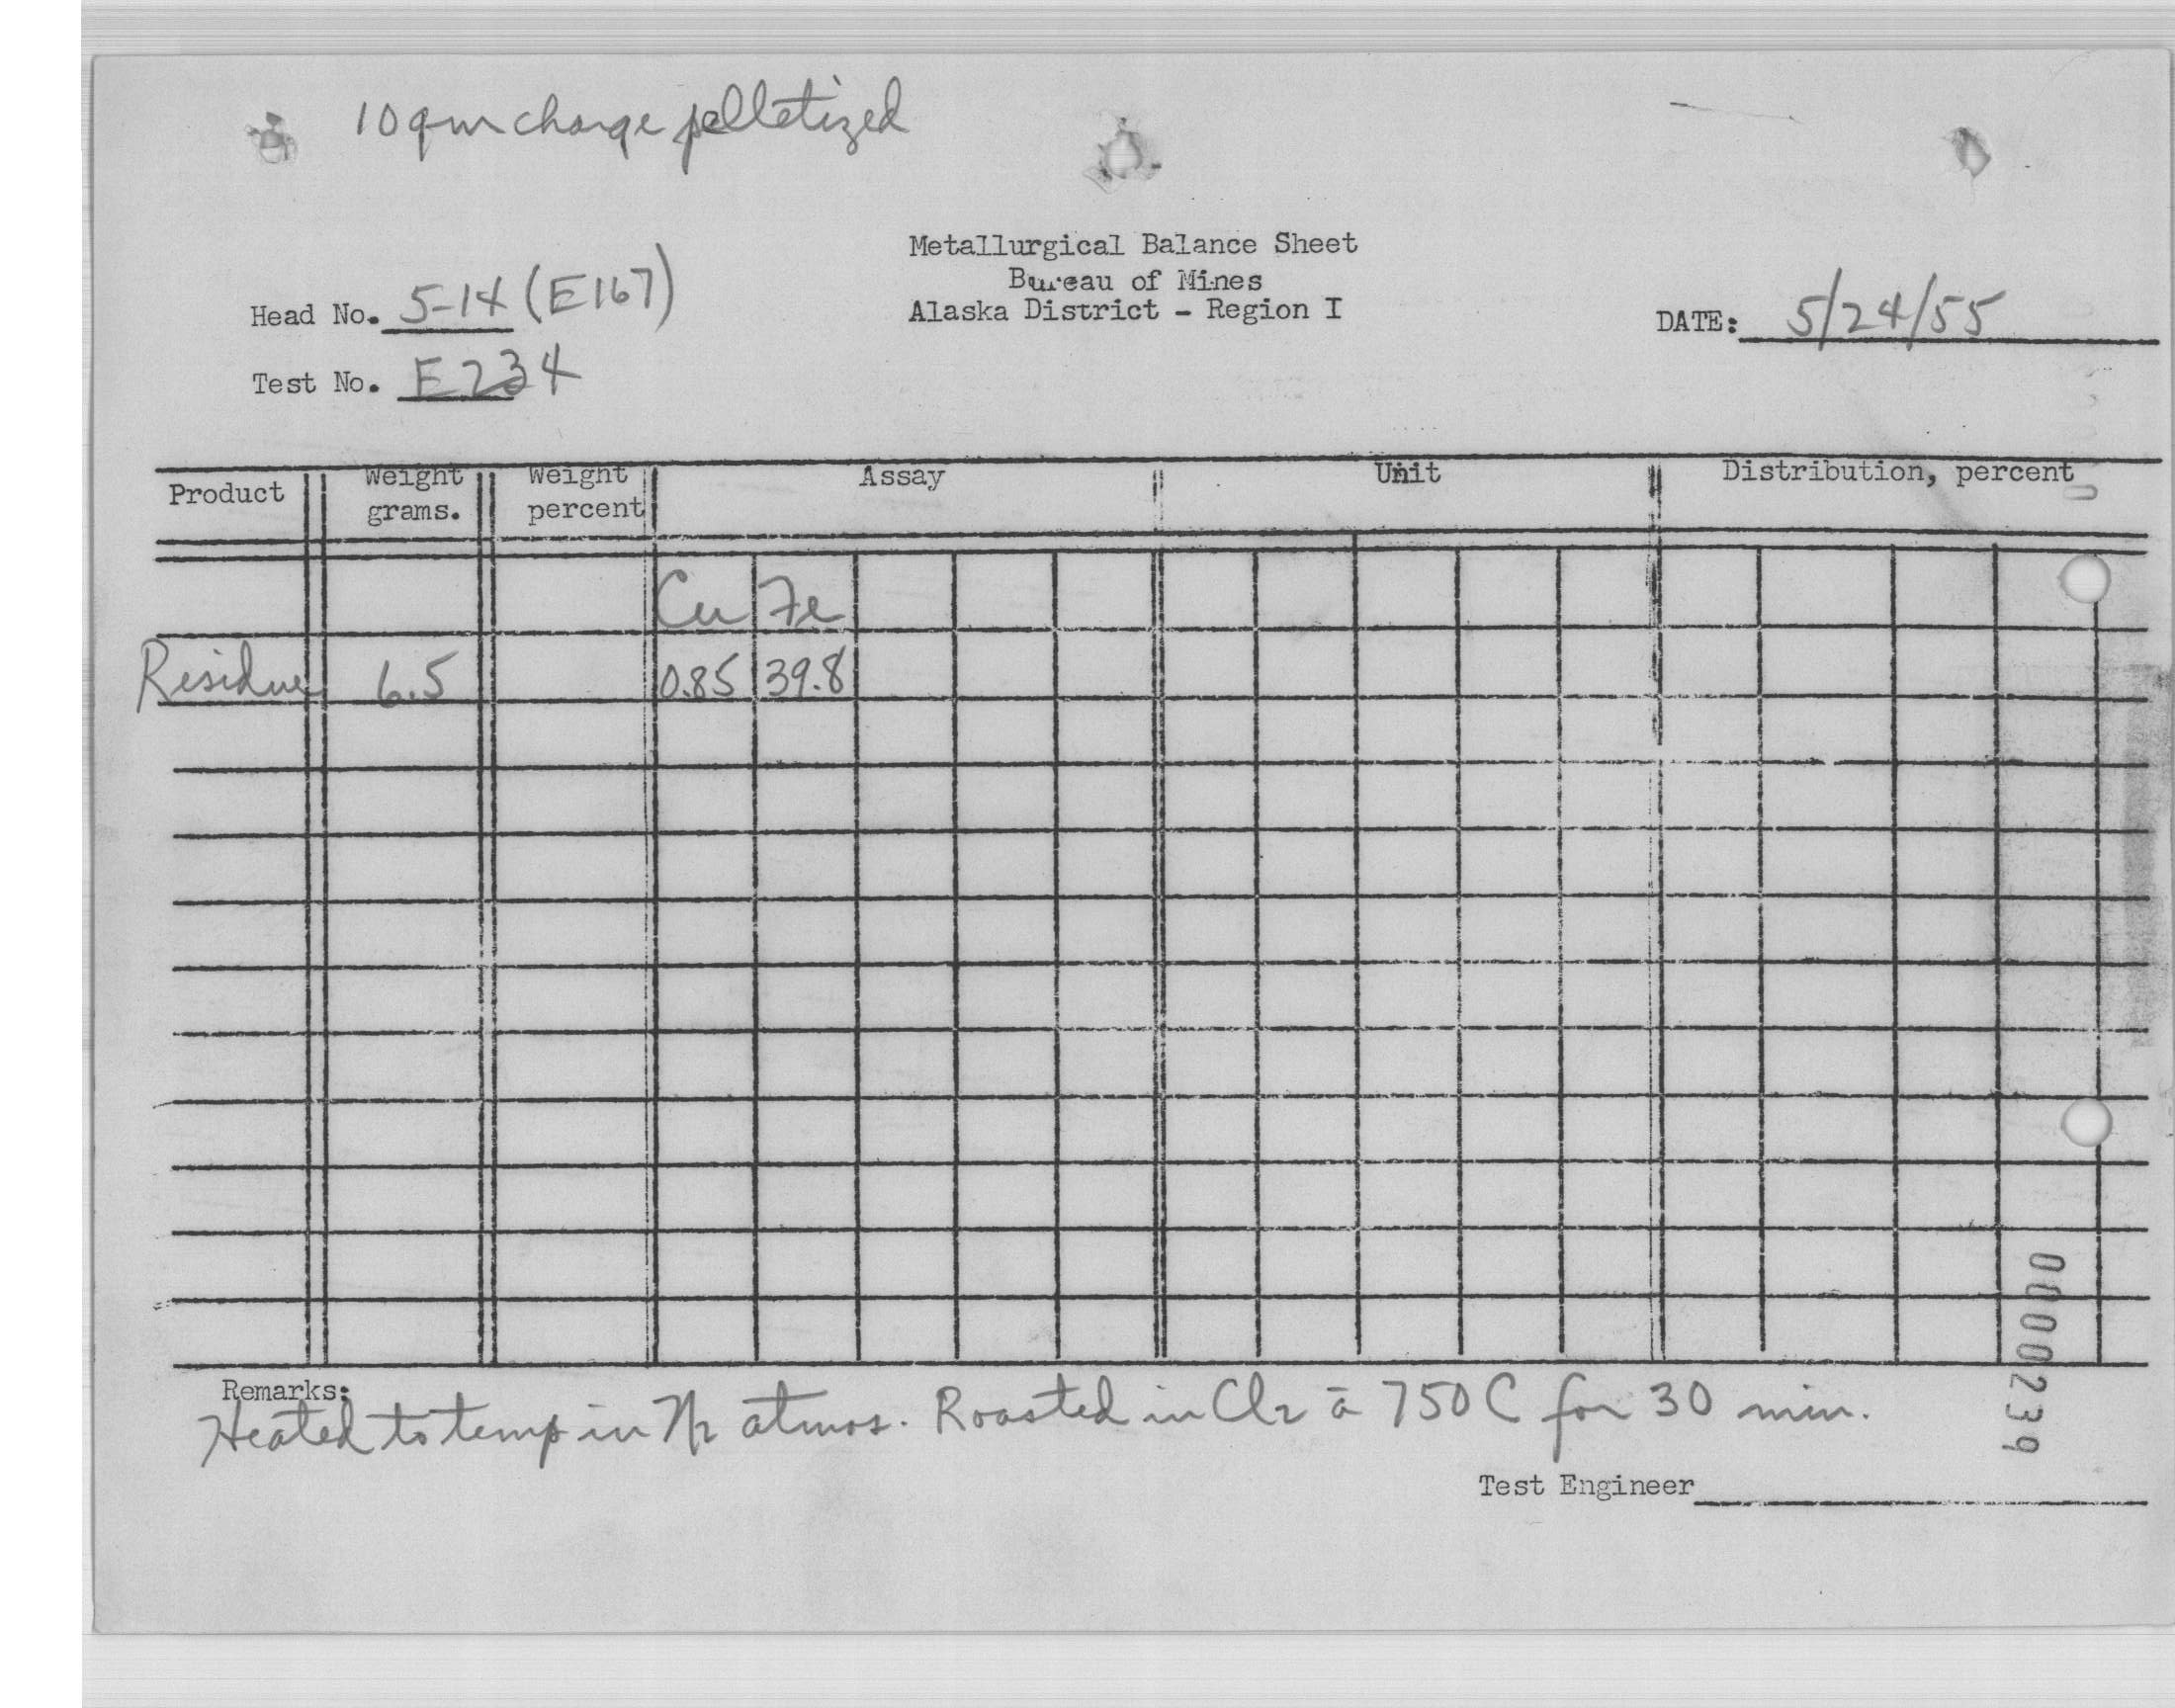 10 gm charge pelletized
Metallurgical Balance Sheet
Bureau of Mines
Alaska District - Region I
Head No. 5-14 (E167)
DATE: 5/24/55
Test No. E234
Product Weight grams. Weight percent Assay Unit Distribution, percent
Cu Fe
Residue 6.5 0.85 39.8
Remarks:
Heated to temp in N2 atmos. Roasted in Cl2 ā 750 C for 30 min.
Test Engineer
0000239